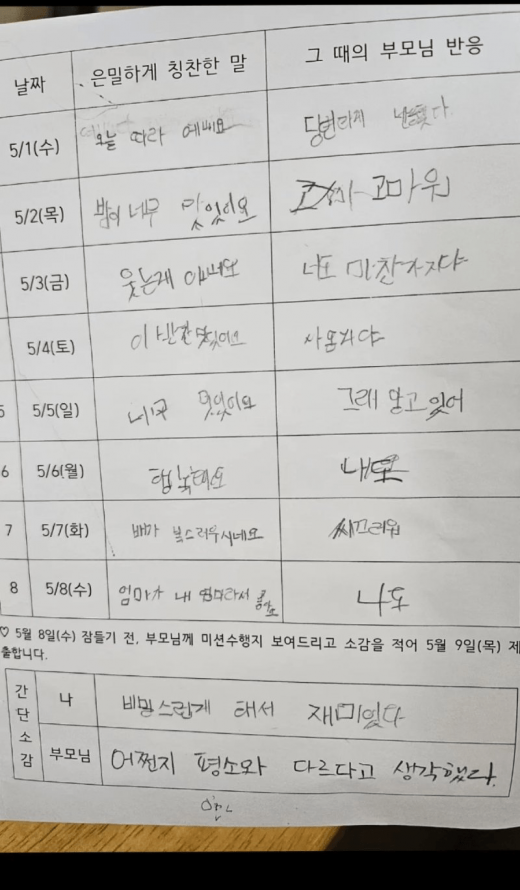 날짜 은밀하게 칭찬한 말 그 때의 부모님 반응
5/1(수) 오늘 따라 예뻐요 당연하게
5/2(목) 밥이 너무 맛있어요 고마워
5/3(금) 웃는게 너도 마찬가지야
5/4(토) 이 반찬 맛있어요
5 5/5(일) 너무 멋있어요 그래 알고 있어
6 5/6(월) 내도
7 5/7(화) 배가 시끄러워
8 5/8(수) 엄마가 내 엄마라서 나도
♡ 5월 8일(수) 잠들기 전, 부모님께 미션수행지 보여드리고 소감을 적어 5월 9일(목) 제
출합니다.
간단소감
나 비밀스럽게 해서 재미있다
부모님 어쩐지 평소와 다르다고 생각했다.